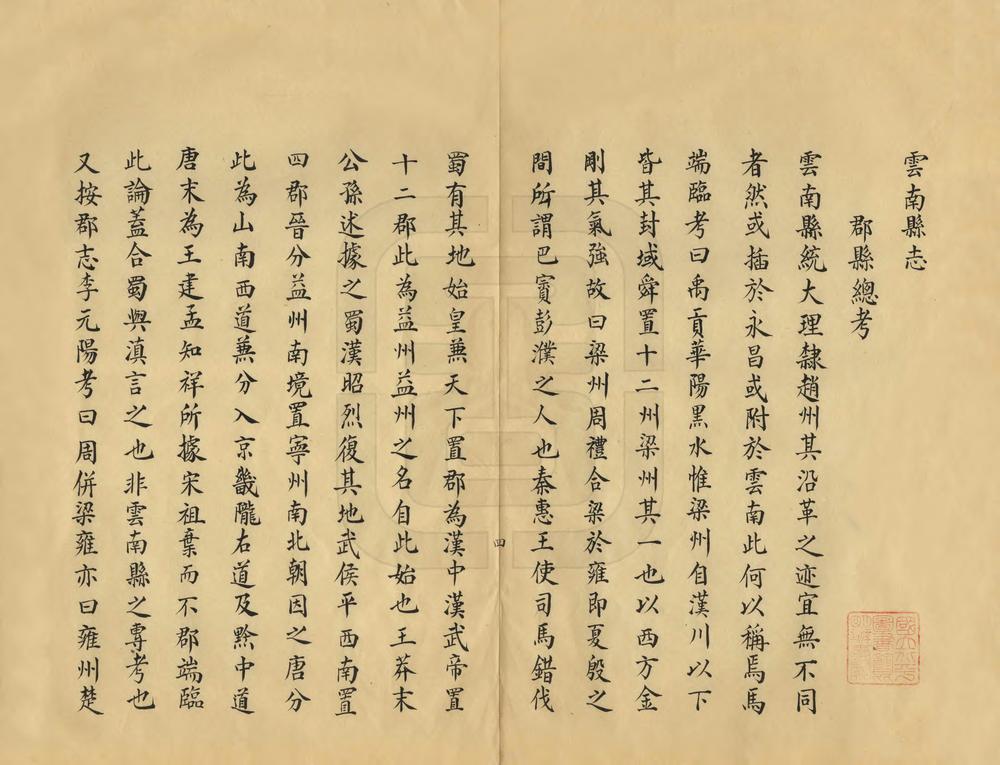 雲南縣志
郡縣總考
雲南縣統大理隸趙州其沿革之迹宜無不同
者然或插於永昌或附於雲南此何以稱焉馬
端臨考曰禹貢華陽黑水惟梁州自漢川以下
皆其封域舜置十二州梁州其一也以西方金
剛其氣強故曰梁州周禮合梁於雍即夏殷之
間所謂巴賨彭濮之人也秦惠王使司馬錯伐
四
蜀有其地始皇蒹天下置郡為漢中漢武帝置
十二郡此為益州益州之名自此始也王莽末
公孫述據之蜀漢昭烈復其地武侯平西南置
四郡晉分益州南境置寧州南北朝因之唐分
此為山南西道蒹分入京畿隴右道及黔中道
唐末為王建孟知祥所據宋祖棄而不郡端臨
此論蓋合蜀與滇言之也非雲南縣之專考也
又按郡志李元陽考曰周併梁雍亦曰雍州楚